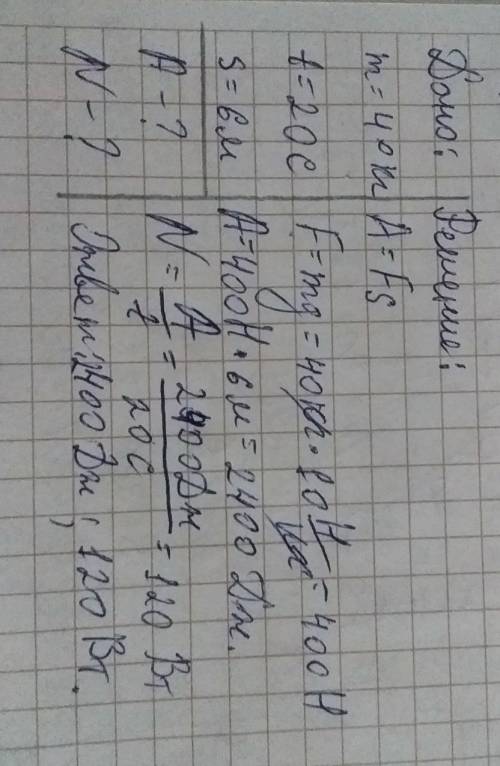 Дано:
m = 40 кг
t = 20 с
s = 6 м
A - ?
N - ?
Решение:
A = Fs
F = mg = 40 кг · 10 Н/кг = 400 Н
A = 400 Н · 6 м = 2400 Дж.
N = A/t = 2400 Дж/20 с = 120 Вт
Ответ: 2400 Дж; 120 Вт.